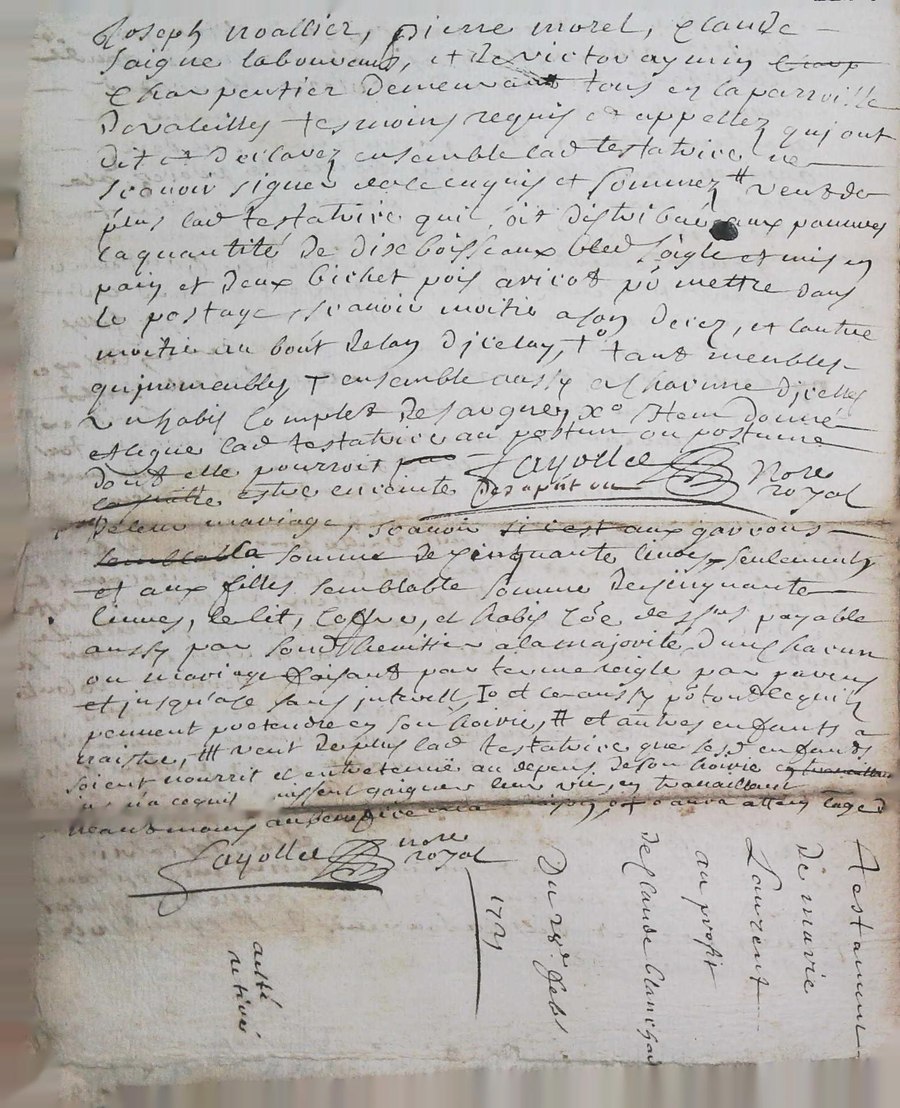 Joseph noallier, pierre morel, Claude
Saigne laboureurs, et de victor aymin
Charpentier demeurant tous en la parroisse
de valeilles tesmoins requis et appellez qui ont
dit et declarez ensemble lad testatrice ne
scavoir signer de ce enquis et sommez # veut de
plus lad testatrice qui soit distribué aux pauvres
la quantité de dix boisseaux bled seigle et mis en
pain et deux bichet pois aricot po mettre dans
le postage scavoir moitie a son decez, et l'autre
moitie au bout de l'an d'iceluy, + tant meubles
qu'immeubles + ensemble aussy a chacune d'icelles
un habis complet de Item donne
et legue lad testatrice au postum ou postume
dont elle pourroit
estre enceinte Fayolle Nore royal
de leur mariage, scavoir si c'est aux garçons
la somme de cinquante livres seulement
et aux filles semblable somme de cinquante
livres, le lit, coffre, et habis dessus payable
aussy par sond heritier a la majorité d'un chacun
ou mariage faisant par terme reiglé par parens
et jusqu'a ce sans interest, et ce aussy po tout ce qu'ils
peuvent pretendre en son hoirie, # et autres enfants a
naistre, ## veut de plus lad testatrice que sesd enfants
soient nourrit et entretenu au depens de son hoirie
jusqu'a ce qu'il puissent gaigner leur vie, en travaillant
neantmoins
Fayolle nore royal
Testament
de marie
Laurent
au profit
de Claude
Du 28e febr
1721